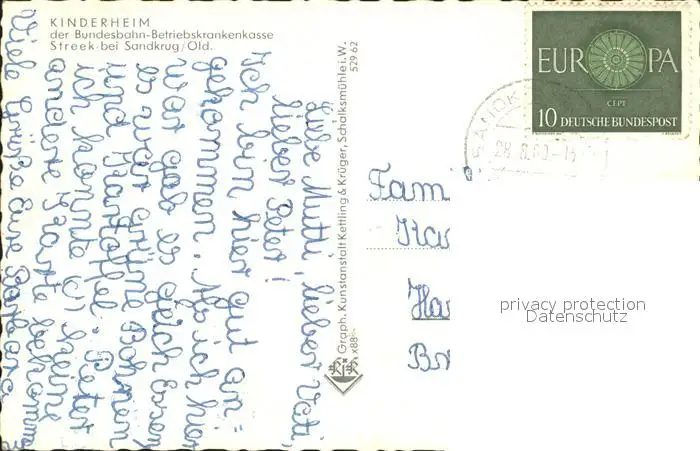 KINDERHEIM
der Bundesbahn-Betriebskrankenkasse
Streek bei Sandkrug/Old.
Liebe Mutti, lieber Vati,
lieber Peter!
Ich bin hier gut an-
gekommen. Als ich hier
war gab es gleich Essen,
es war grüne Bohnen
und Kartoffel. Peter
ich konnte keine
andere Karte bekomme
Viele Grüße Eure
Graph. Kunstanstalt Kettling & Krüger, Schalksmühle i. W.
529 62
x88
K&K
EUROPA
CEPT
10 DEUTSCHE BUNDESPOST
SANDK
28.8.60-1
Fam
Ha
Br
privacy protection
Datenschutz